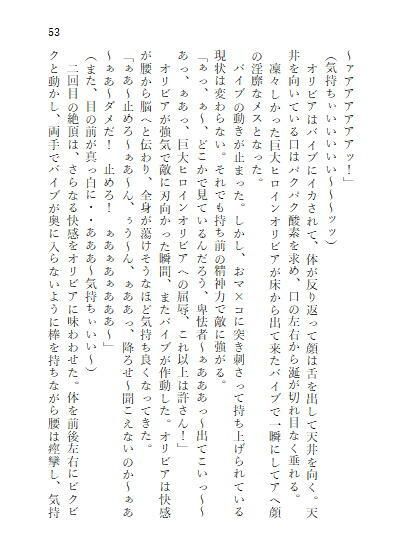 53
～ァアアアアアアッ！」
（気持ちぃいいいいい～～～ッッ）
　オリビアはバイブにイカされて、体が反り返って顔は舌を出して天井を向く。天
井を向いている口はパクパク酸素を求め、口の左右から涎が切れ目なく垂れる。
　凜々しかった巨大ヒロインオリビアが床から出て来たバイブで一瞬にしてアヘ顔
の淫靡なメスとなった。
　バイブの動きが止まった。しかし、おマ×コに突き刺さって持ち上げられている
現状は変わらない。それでも持ち前の精神力で敵に強がる。
「ぁっ、ぁ～、どこかで見ているんだろう、卑怯者～ぁああぁっ～出てこいっ～～
あっ、ぁあっ、巨大ヒロインオリビアへの屈辱、これ以上は許さん！」
　オリビアが強気で敵に刃向かった瞬間、またバイブが作動した。オリビアは快感
が腰から脳へと伝わり、全身が蕩けそうなほど気持ち良くなってきた。
「ぁあ～止めろ～ぁあ～ん、ぅう～ん、ぁああっ、降ろせ～聞こえないのか～ぁあ
～ぁあ～ダメだ！　止めろ！　ぁあぁあぁあぁあ～」
（また、目の前が真っ白に・・あああ～気持ちぃいい～）
　二回目の絶頂は、さらなる快感をオリビアに味わわせた。体を前後左右にビクビ
クと動かし、両手でバイブが奥に入らないように棒を持ちながら腰は痙攣し、気持